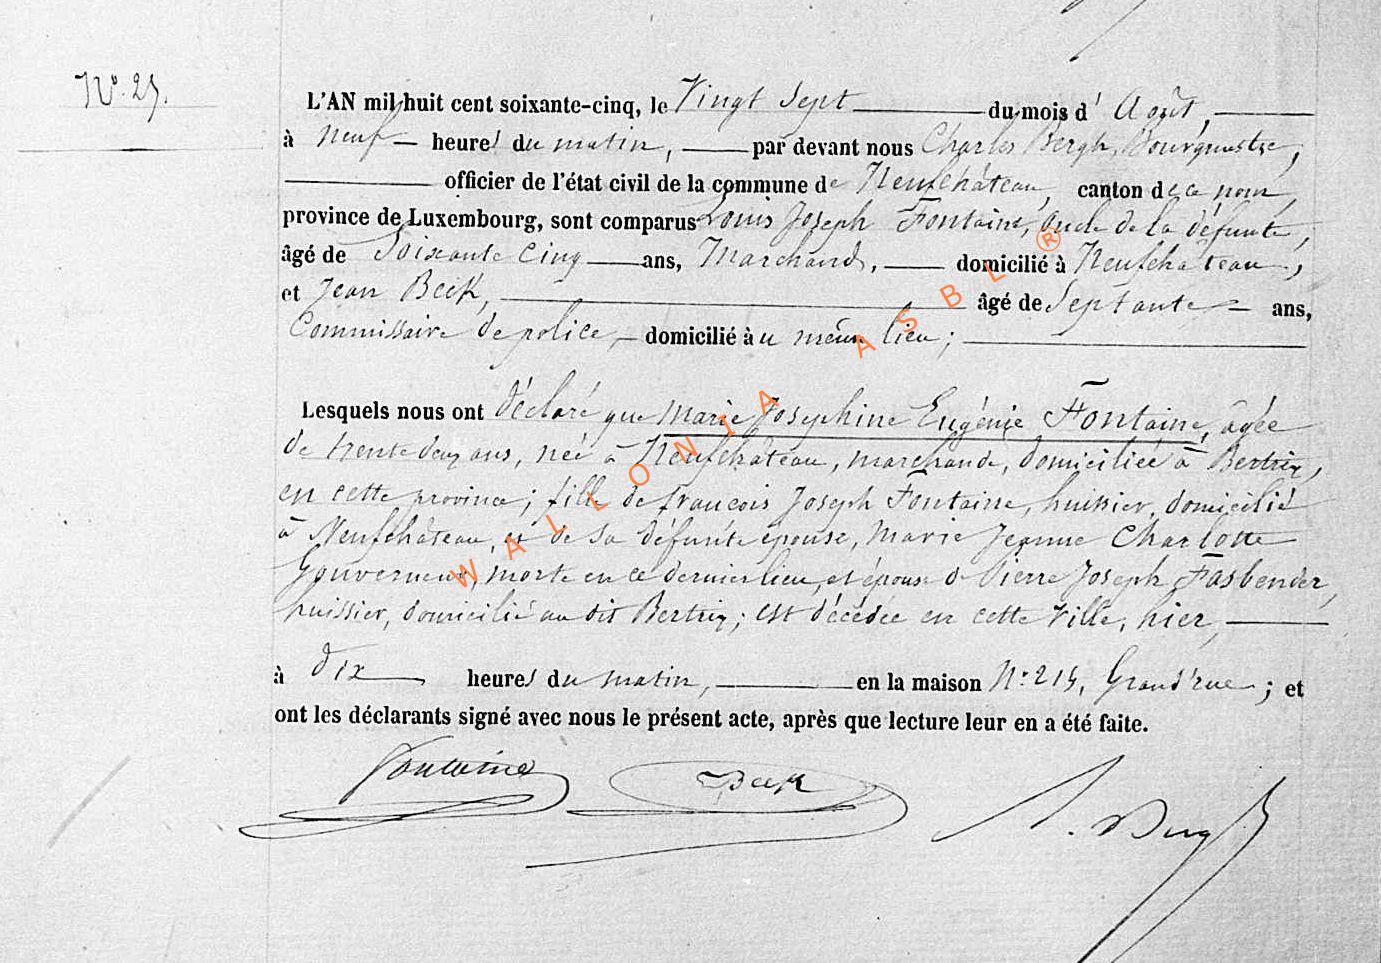 N° 25.
L'AN mil huit cent soixante-cinq, le Vingt Sept du mois d' Août,
à neuf heures du matin, par devant nous Charles Bergh, Bourgmestre,
officier de l'état civil de la commune de Neufchâteau, canton de ce nom,
province de Luxembourg, sont comparus Louis Joseph Fontaine, Oncle de la défunte,
âgé de Soixante Cinq ans, Marchand, domicilié à Neufchâteau,
et Jean Beck, âgé de Septante ans,
Commissaire de police, domicilié au même lieu;
Lesquels nous ont déclaré que Marie Josephine Eugénie Fontaine, âgée
de trente deux ans, née à Neufchâteau, marchande, domiciliée à Bertrix,
en cette province; fille de françois Joseph Fontaine, huissier, domicilié
à Neufchâteau, et de sa défunte épouse, Marie Jeanne Charlotte
Gouverneur, morte en ce dernier lieu, et épouse de Pierre Joseph Fasbender,
huissier, domicilié au dit Bertrix; est décédée en cette Ville, hier,
à dix heures du matin, en la maison N° 215, Grand'rue; et
ont les déclarants signé avec nous le présent acte, après que lecture leur en a été faite.
Fontaine Beck
WALLONIA ASBL ®